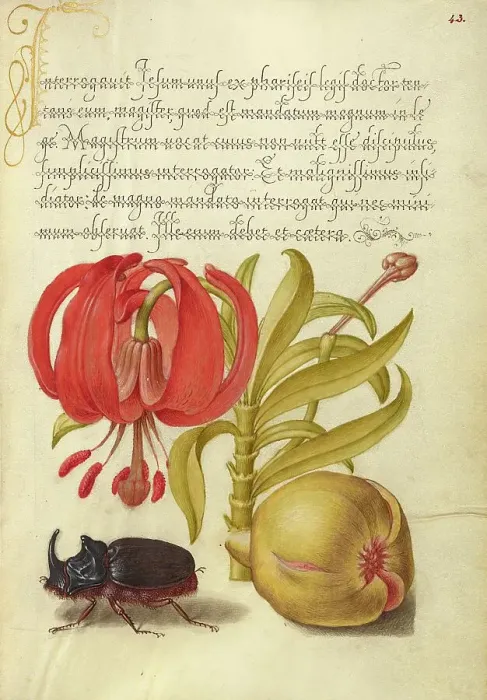 43.
Interrogauit Jesum unus ex phariseis legis doctor ten-
tans eum, magister quod est mandatum magnum in le-
ge. Magistrum uocat cuius non uult esse discipulus,
simplicissimus interrogator. Et malignissimus insi-
diator: de magno mandato interrogat qui nec mini-
mum obseruat. Ille enim debet et cætera.